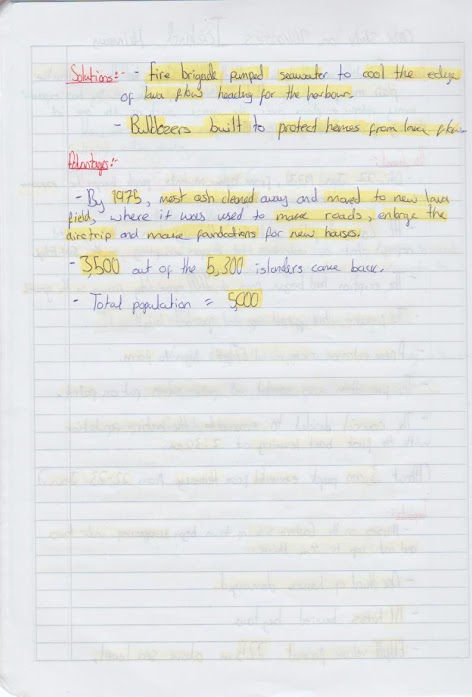 Solutions:- - fire brigade pumped seawater to cool the edge
of lava flow heading for the harbour.
- Bulldozers built to protect homes from lava flow.
Advantages:-
- By 1975, most ash cleared away and moved to new lava
field, where it was used to make roads, enlarge the
airstrip and make foundations for new houses.
- 3,500 out of the 5,300 islanders came back.
- Total population = 5,000